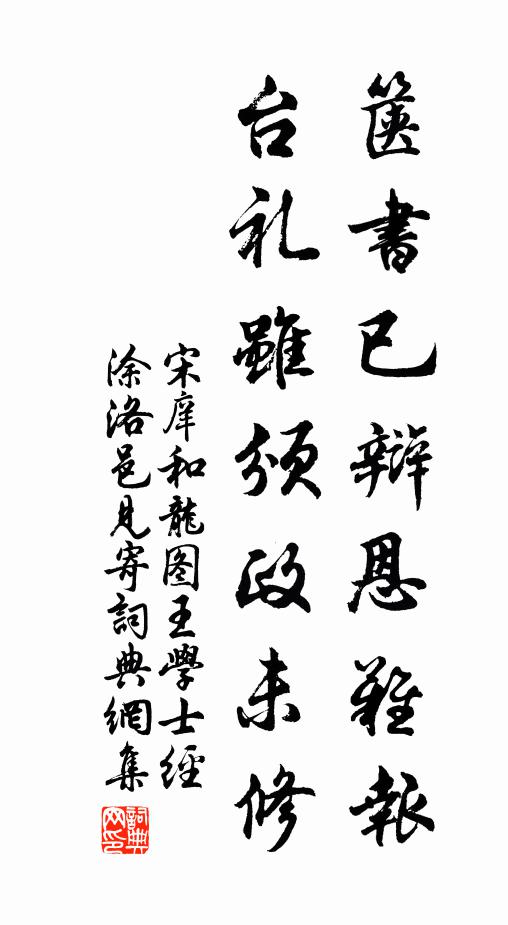 篋書已辯恩難報
台礼雖頒政未修
宋庠和龍图王學士經
涂洛邑見寄詞典網集
詞典网印